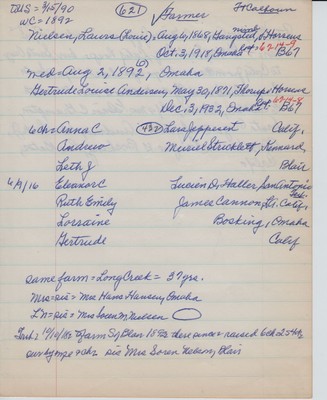 TMS = 3/5/90 (621) Farmer Ft Calhoun
WC = 1892
Nielsen, Laurs (Louie), Aug 6, 1868, Hangsted, Horsens
Oct. 3, 1918, Omaha B67
med = Aug 2, 1892, Omaha
Gertrude Louise Andersen, May 30, 1871, Horsens
Dec. 13, 1932, Omaha B67
6ch = Anna C (432) Lars Jeppesen Calif.
Andrew Muriel Stricklett, Kennard,
Leth J Blair
6/9/16 Eleanor C Lucien D, Haller San Antonio
Ruth Emily James Cannon, Calif.
Lorraine Bosking, Omaha
Gertrude Calif
same farm = Long Creek = 37 yrs.
Mrs = sis = Mrs Hans Hansen, Omaha
Ln = sis = Mrs Soren M Nielsen
farm S, Blair 1892 there since = raised 6ch
sis Mrs Soren Nielsen, Blair